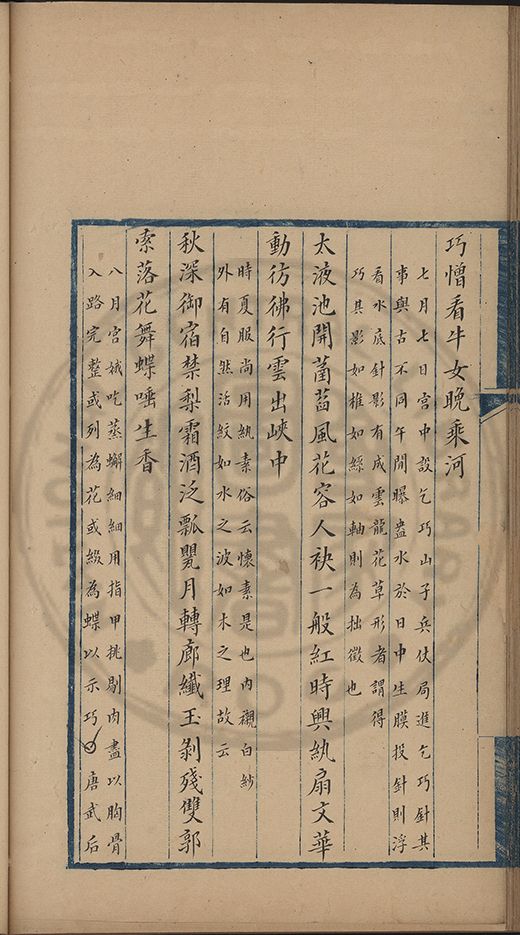 巧憎看牛女晚乘河
七月七日宮中設乞巧山子兵仗局進乞巧針其
事與古不同午間曝盎水於日中生膜投針則浮
看水底針影有成雲龍花草形者謂得
巧其影如椎如絲如軸則為拙徵也
太液池開菡萏風花容人袂一般紅時興紈扇文華
動彷彿行雲出峽中
時夏服尚用紈素俗云懷素是也內襯白紗
外有自然活紋如水之波如木之理故云
秋深御宿禁梨霜酒泛瓢甖月轉廊纖玉剝殘雙郭
索落花舞蝶唾生香
八月宮娥吃蒸蠏細細用指甲挑剔肉盡以胸骨
入路完整或列為花或綴為蝶以示巧 唐武后